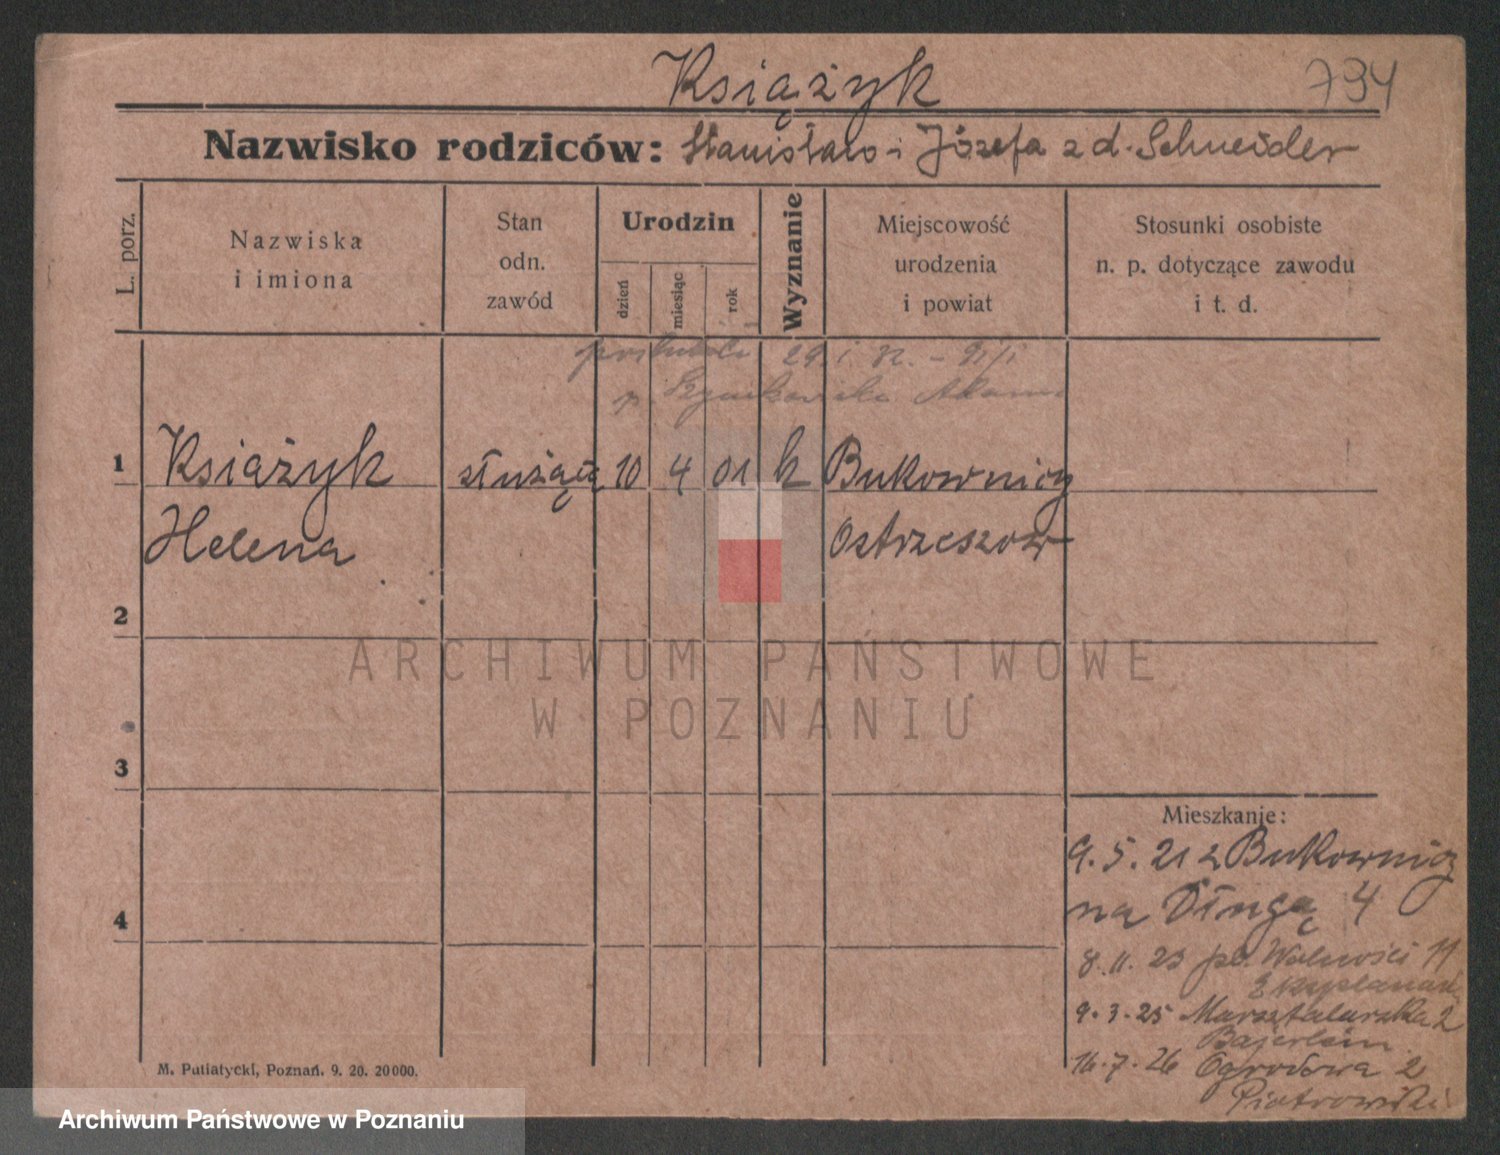 Książyk
794
Nazwisko rodziców: Stanisław i Józefa z d. Schneider
L. porz.
Nazwiska
i imiona
Stan
odn.
zawód
Urodzin
dzień
miesiąc
rok
Wyznanie
Miejscowość
urodzenia
i powiat
Stosunki osobiste
n. p. dotyczące zawodu
i t. d.
poślubiła 29.1.32.
1 Książyk służąca 10 4 01 k Bukownicy
Helena Ostrzeszów
2
3
4
ARCHIWUM PAŃSTWOWE
W POZNANIU
Mieszkanie:
9.5.21 z Bukownicy
na Długą 4
8.11.23 pl. Wolności 11
9.3.25 Marsztalarska 2
Bajerlein
16.7.26 Ogrodowa 2
Piotrowski
M. Putiatycki, Poznań. 9. 20. 20000.
Archiwum Państwowe w Poznaniu